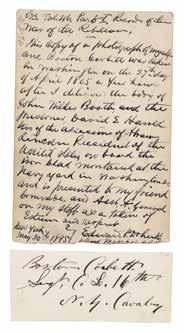 See Table Part of Records of the
War of the Rebellion.
This Copy of a Photograph of myself
and Boston Corbett was taken
in Washington on the 27th day
of April 1865 a few hours
after I deliver the body of
John Wilkes Booth and the
Prisoner David E. Harold
one of the assassins of Abram
Lincoln President of the
United States on board the
Iron clad Montauk at the
Navy yard in Washington
and is presented to my friend
as Asst. General
on my Staff as a token of
Esteem and respect
New York
May 30th 1895
Edward P. Doherty
Boston Corbett
Sergt Co. L. 16th
N.Y. Cavalry